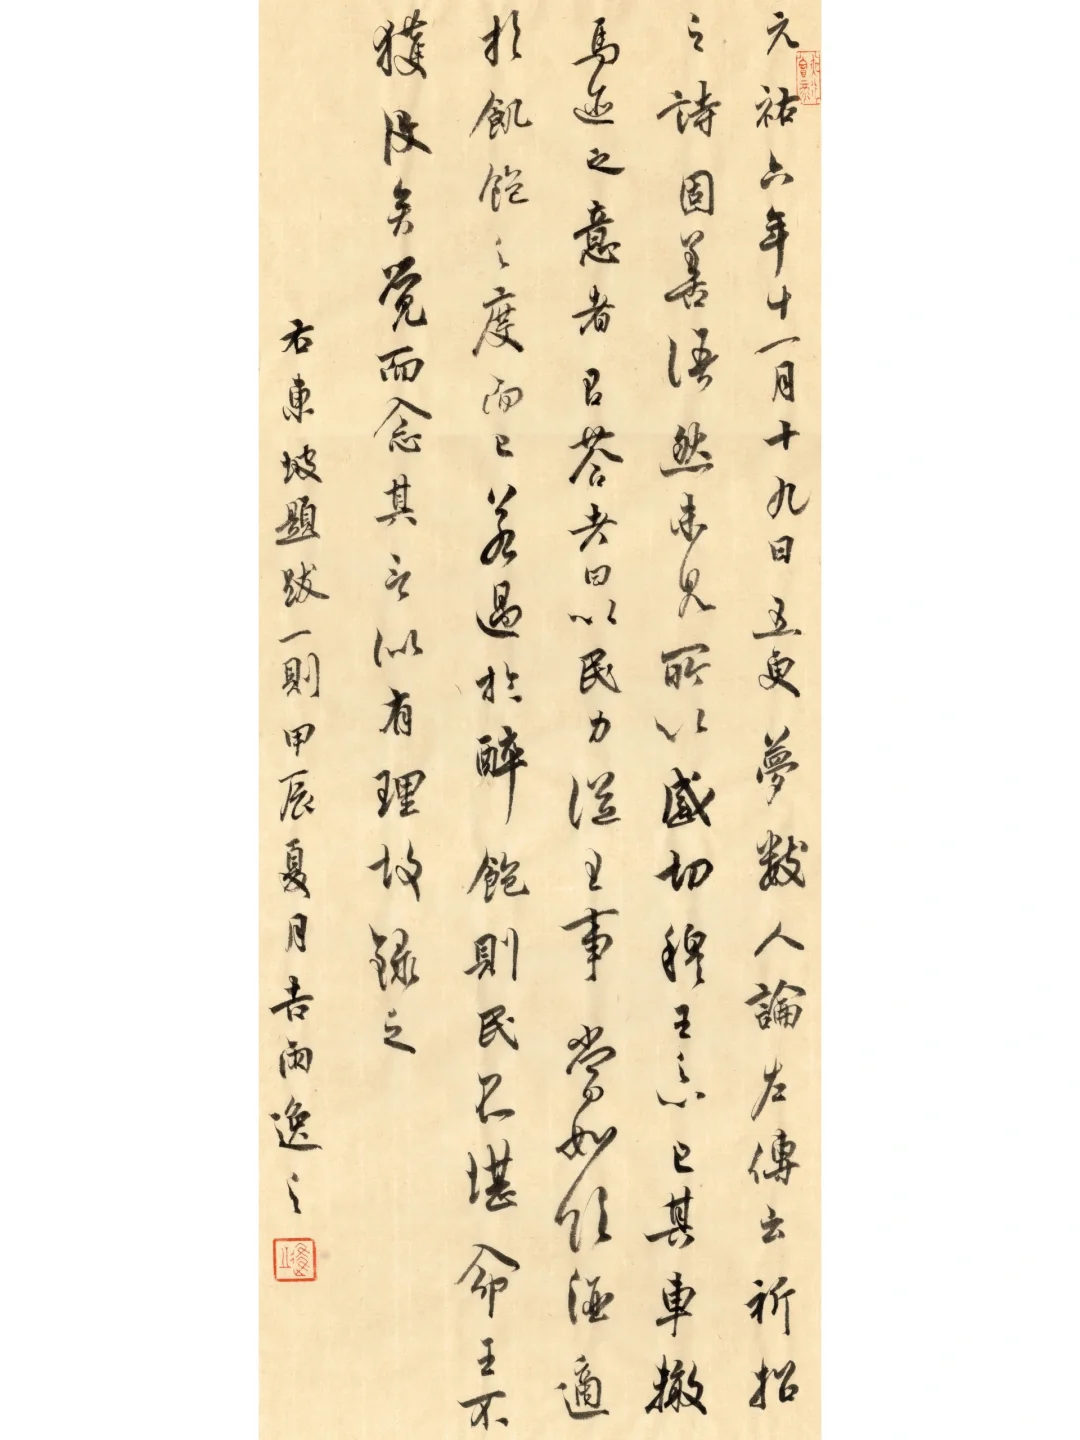 元祐六年十一月十九日五更夢數人論左傳云祈招
之詩固善語然未見所以感切穆王之心已其車轍
馬迹之意者有荅者曰以民力從王事當如飲酒適
於飢飽之度而已若過於醉飽則民不堪命王不
獲沒矣覺而念其言似有理故錄之
右東坡題跋一則甲辰夏月吉雨逸之